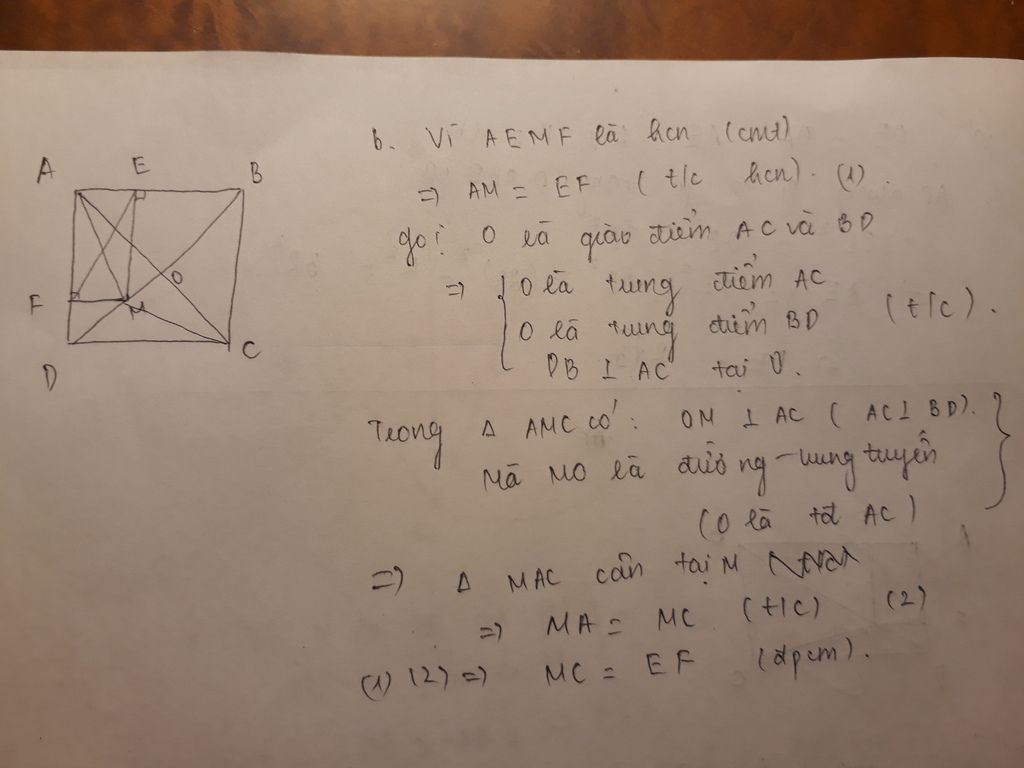 A E B
F O
M
D C
b. Vì AEMF là hcn (cmt)
=> AM = EF (t/c hcn). (1).
gọi O là giao điểm AC và BD
=> { O là trung điểm AC
O là trung điểm BD (t/c).
DB ⊥ AC tại O.
Trong Δ AMC có: OM ⊥ AC (AC ⊥ BD). }
Mà MO là đường trung tuyến
(O là tđ AC)
=> Δ MAC cân tại M
=> MA = MC (t/c) (2)
(1) (2) => MC = EF (đpcm).